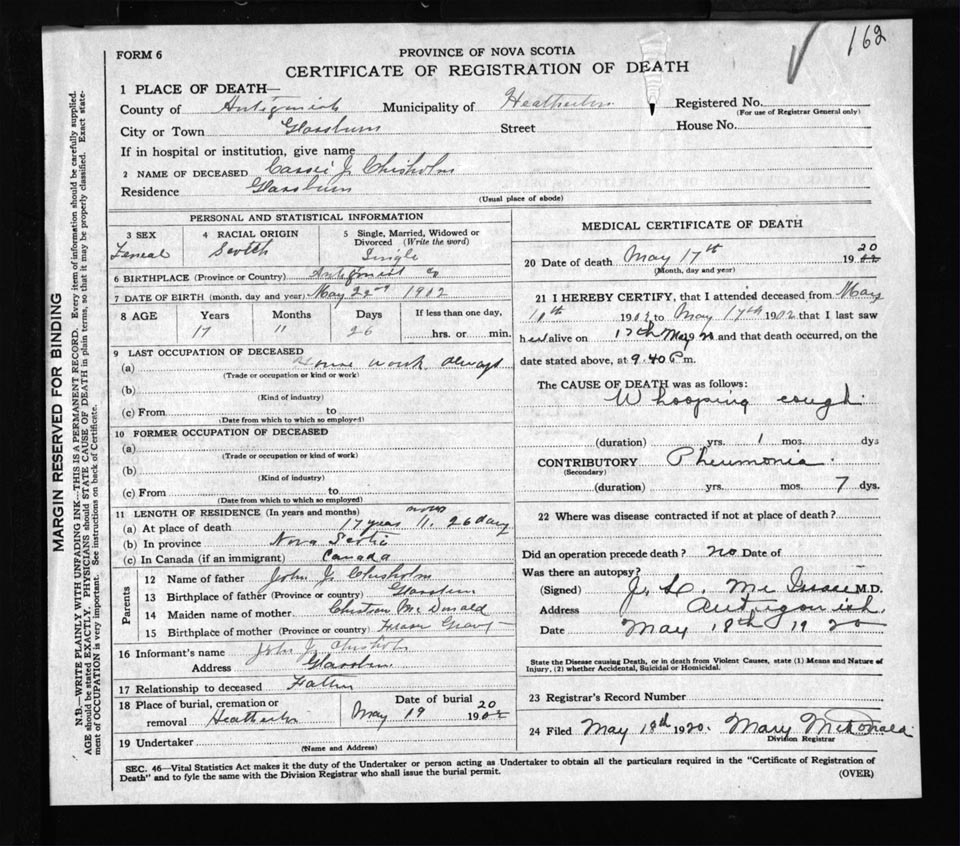 162
FORM 6
PROVINCE OF NOVA SCOTIA
CERTIFICATE OF REGISTRATION OF DEATH
1 PLACE OF DEATH—
County of Antigonish Municipality of Heatherton Registered No.
(For use of Registrar General only)
City or Town Glassburn Street House No.
If in hospital or institution, give name
2 NAME OF DECEASED Cassie J. Chisholm
Residence Glassburn
(Usual place of abode)
PERSONAL AND STATISTICAL INFORMATION
3 SEX 4 RACIAL ORIGIN 5 Single, Married, Widowed or
Divorced (Write the word)
Femeal Scotch Single
6 BIRTHPLACE (Province or Country) Antigonish Co
7 DATE OF BIRTH (month, day and year) May 22nd 1902
8 AGE Years Months Days If less than one day,
17 11 26 hrs. or min.
9 LAST OCCUPATION OF DECEASED
(a) Home work always
(Trade or occupation or kind or work)
(b)
(Kind of industry)
(c) From to
(Date from which to which so employed)
10 FORMER OCCUPATION OF DECEASED
(a)
(Trade or occupation or kind of work)
(b)
(Kind of industry)
(c) From to
(Date from which to which so employed)
11 LENGTH OF RESIDENCE (In years and months)
(a) At place of death 17 years 11. 26 days
(b) In province Nova Scotia
(c) In Canada (if an immigrant) Canada
Parents
12 Name of father John J. Chisholm
13 Birthplace of father (Province or country) Glassburn
14 Maiden name of mother McDonald
15 Birthplace of mother (Province or country)
16 Informant's name John J. Chisholm
Address Glassburn
17 Relationship to deceased Father
18 Place of burial, cremation or Date of burial
removal Heatherton May 19 1902 20
19 Undertaker
(Name and Address)
MEDICAL CERTIFICATE OF DEATH
20 Date of death May 17th 1902 20
(Month, day and year)
21 I HEREBY CERTIFY, that I attended deceased from May
10th 1902 to May 17th 1902 that I last saw
her alive on 17th May 20 and that death occurred, on the
date stated above, at 9.40 P.m.
The CAUSE OF DEATH was as follows:
Whooping cough
(duration) yrs. 1 mos. dys
CONTRIBUTORY Pneumonia
(Secondary)
(duration) yrs. mos. 7 dys.
22 Where was disease contracted if not at place of death?
Did an operation precede death? no Date of
Was there an autopsy?
(Signed) J. M.D.
Address Antigonish.
Date May 18th 1920
State the Disease causing Death, or in death from Violent Causes, state (1) Means and Nature of
Injury, (2) whether Accidental, Suicidal or Homicidal.
23 Registrar's Record Number
24 Filed May 18th 1920. Mary McDonald
Division Registrar
SEC. 46—Vital Statistics Act makes it the duty of the Undertaker or person acting as Undertaker to obtain all the particulars required in the "Certificate of Registration of
Death" and to fyle the same with the Division Registrar who shall issue the burial permit.
(OVER)
MARGIN RESERVED FOR BINDING
N.B.—WRITE PLAINLY WITH UNFADING INK—THIS IS A PERMANENT RECORD. Every item of information should be carefully supplied.
AGE should be stated EXACTLY. PHYSICIANS should STATE CAUSE OF DEATH in plain terms, so that it may be properly classified. Exact state-
ment of OCCUPATION is very important. See instructions on back of Certificate.